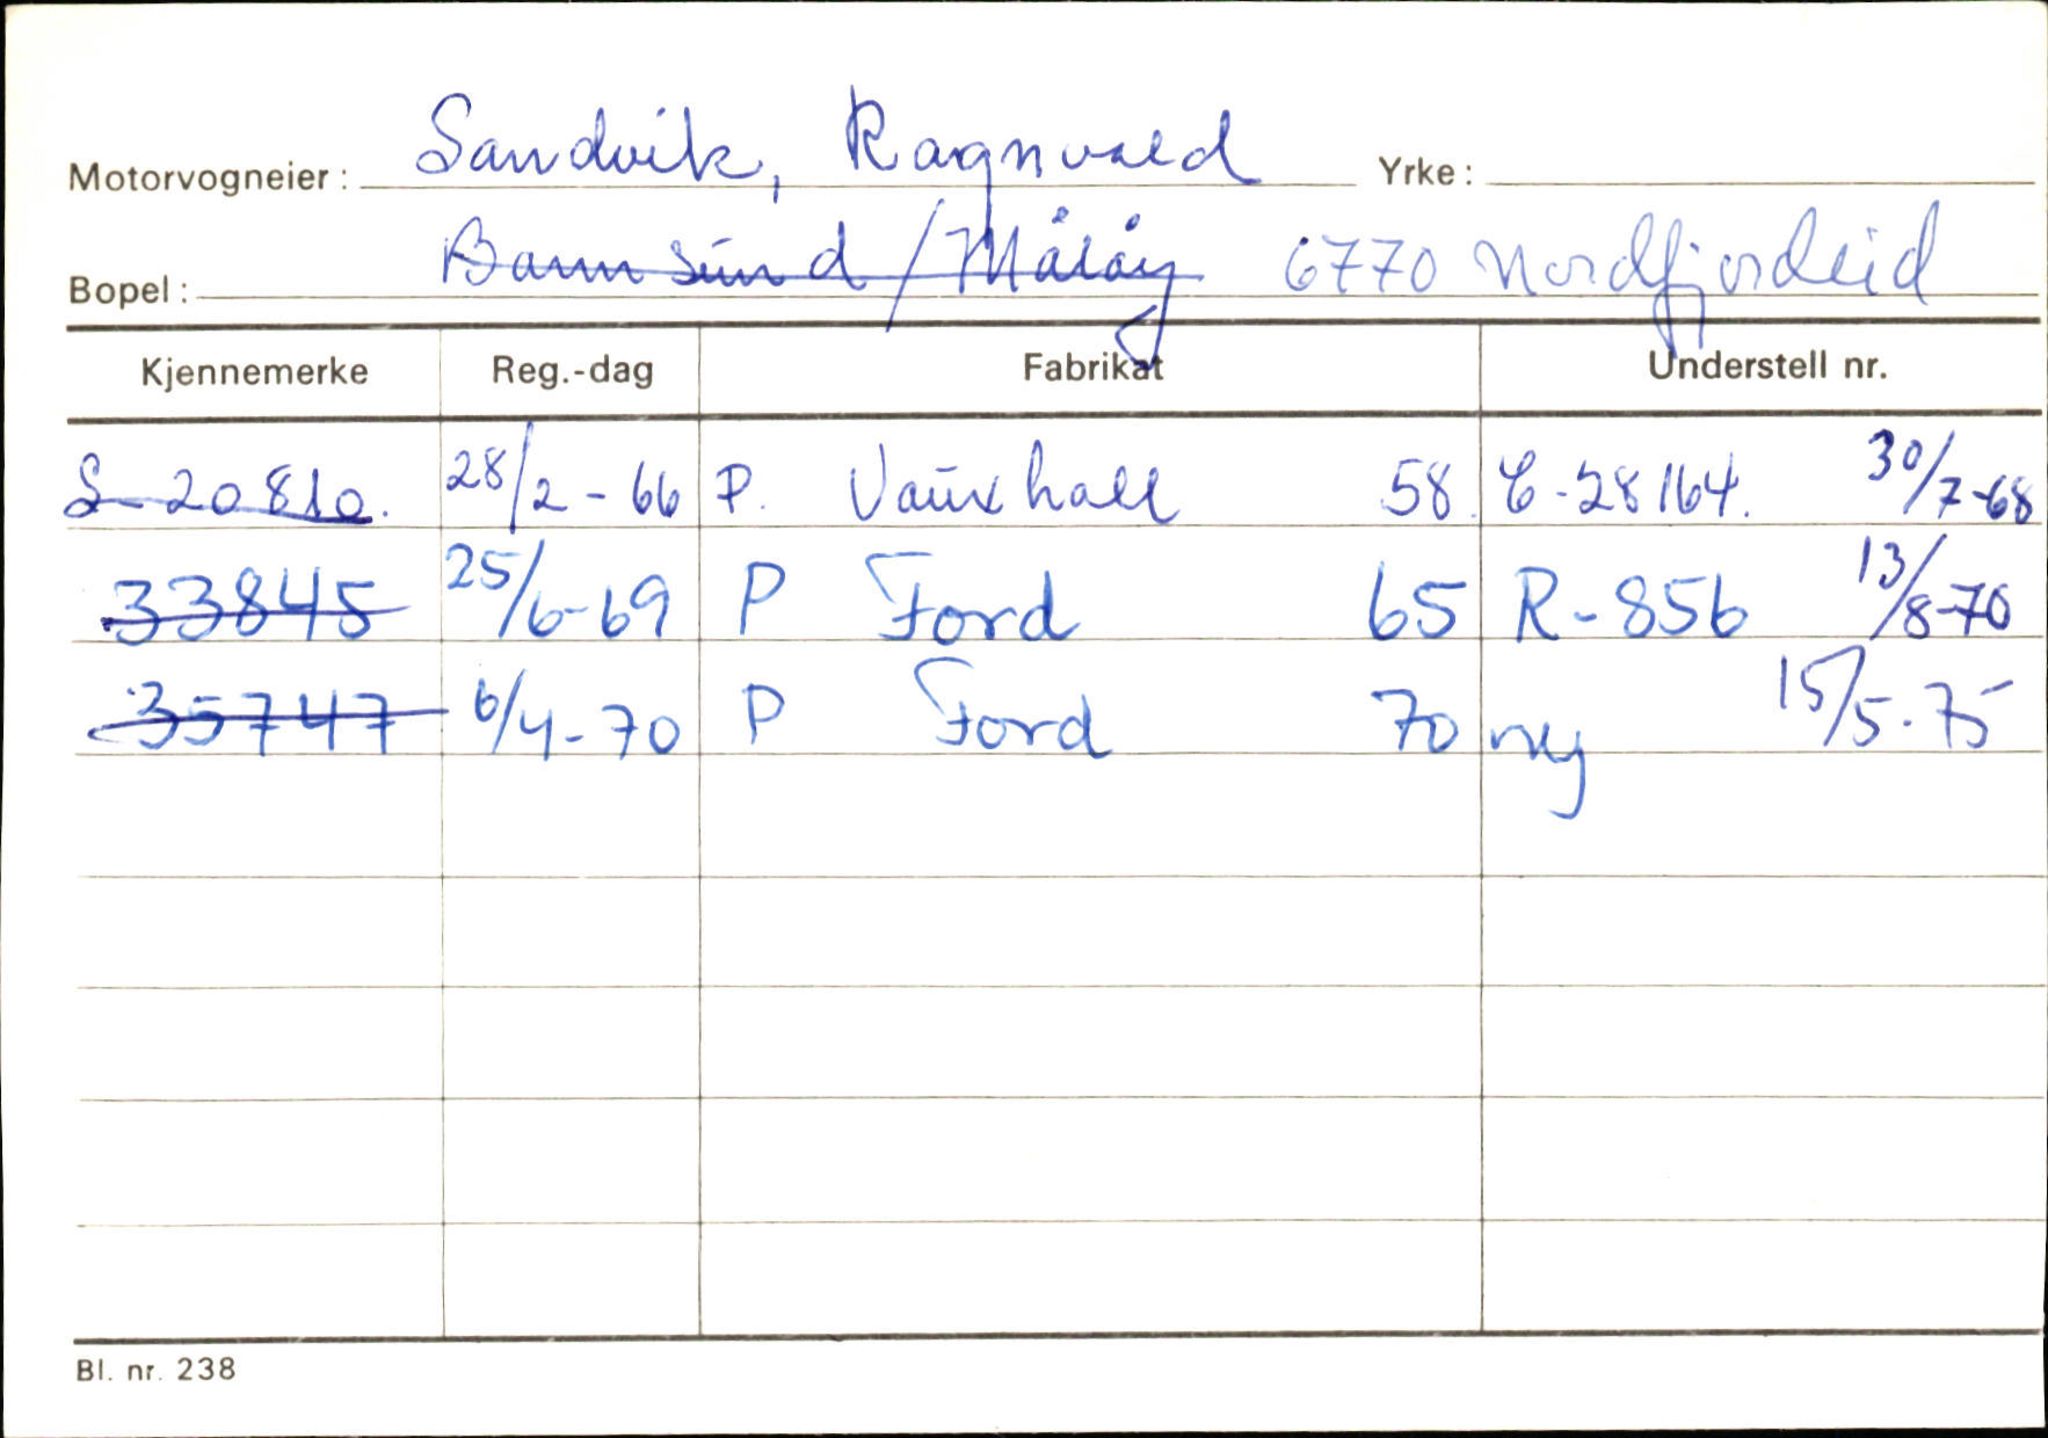 Motorvogneier: Sandvik, Ragnvald Yrke:
Bopel: Barmsund/Måløy 6770 Nordfjordeid
Kjennemerke Reg.-dag Fabrikat Understell nr.
S-20810. 28/2-66 P. Vauxhall 58. E-28164. 30/7-68
33845 25/6-69 P Ford 65 R-856 13/8-70
35747 6/4-70 P Ford 70 ny 15/5-75
Bl. nr. 238